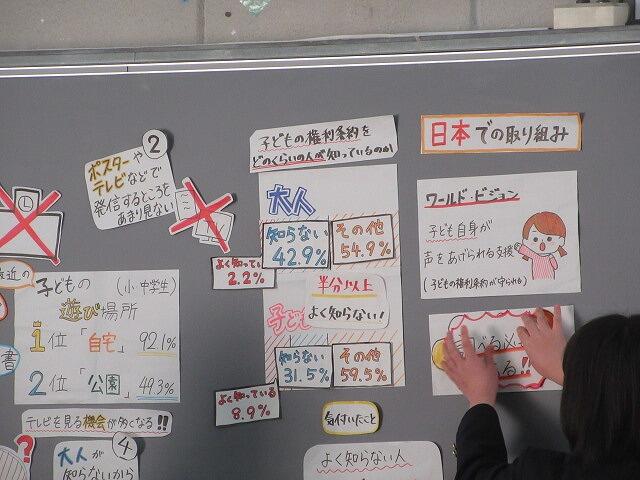 ②
ポスターや
テレビなどで
発信するところを
あまり見ない
最近の
子どもの (小・中学生)
遊び場所
1位「自宅」92.1%
2位「公園」49.3%
テレビを見る機会が多くなる!!
書
?
④
大人が
知らないから
子どもの権利条約を
どのくらいの人が知っているのか
大人
知らない
42.9%
その他
54.9%
よく知っている
2.2%
半分以上
よく知らない!
子ども
知らない
31.5%
その他
59.5%
よく知っている
8.9%
気付いたこと
よく知らない人
日本での取り組み
ワールド・ビジョン
子ども自身が
声をあげられる支援
(子どもの権利条約が守られる)